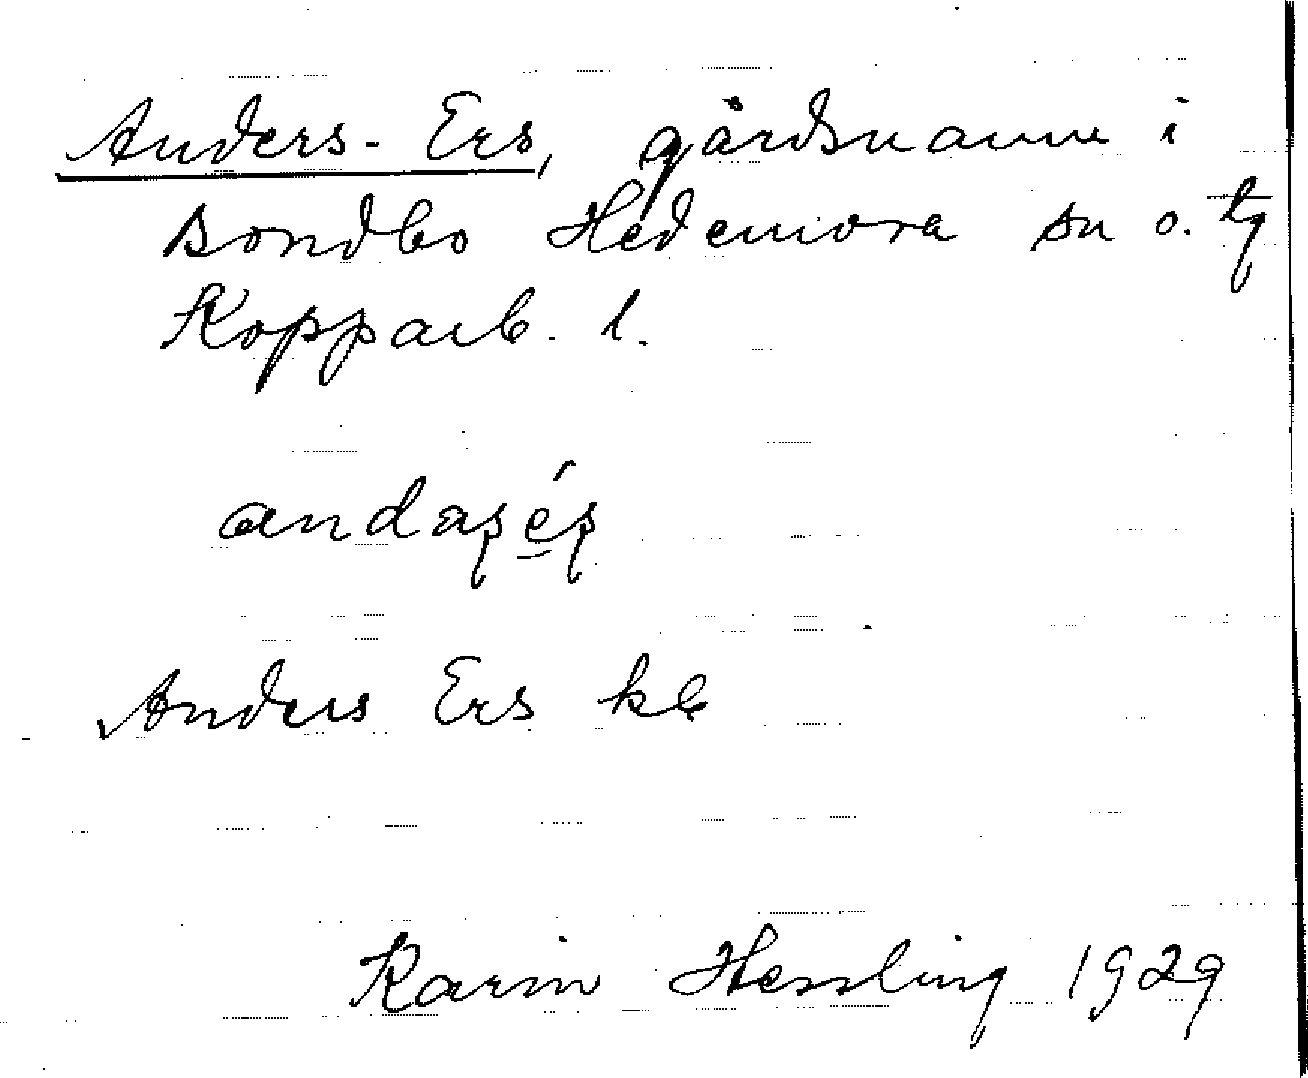 Anders-Ers, gårdsnamn i
Bondbo Hedemora sn o. tg
Kopparb. l.
andaʂéʂ
Anders Ers kb
Karin Hessling 1929